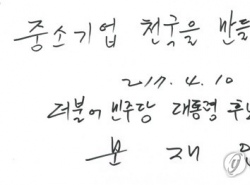 중소기업 천국을 만들
2017. 4. 10
더불어민주당 대통령 후보
문 재